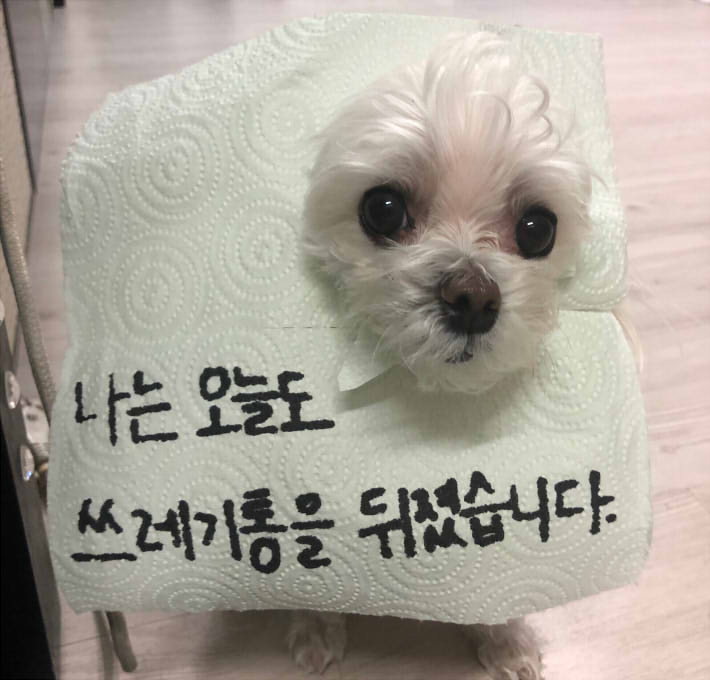 나는 오늘도
쓰레기통을 뒤졌습니다.